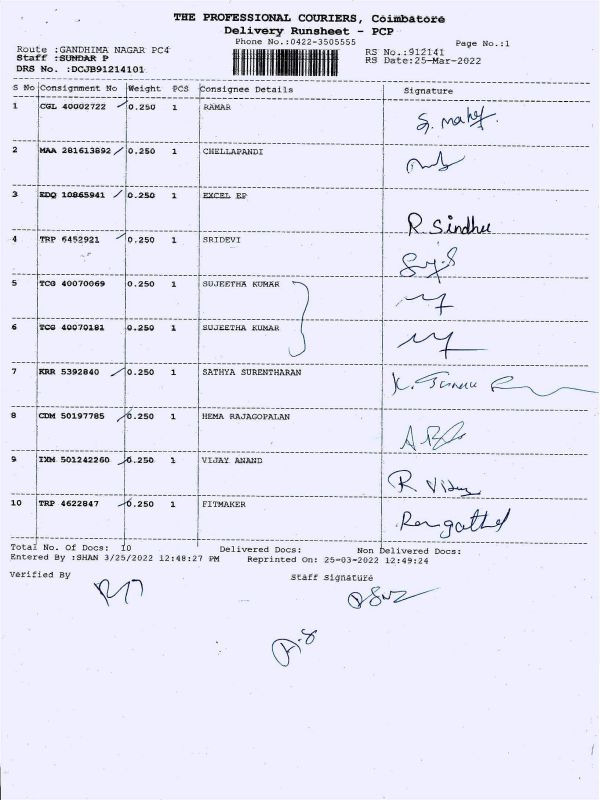 THE PROFESSIONAL COURIERS, Coimbatore
Delivery Runsheet - PCP
Phone No.:0422-3505555 Page No.:1
Route :GANDHIMA NAGAR PC4 RS No.:912141
Staff :SUNDAR P RS Date:25-Mar-2022
DRS No. :DCJB91214101
S No Consignment No Weight PCS Consignee Details Signature
1 CGL 40002722 0.250 1 RAMAR
2 MAA 281613892 0.250 1 CHELLAPANDI
3 EDQ 10865941 0.250 1 EXCEL EP
R Sindhu
4 TRP 6452921 0.250 1 SRIDEVI
5 TCG 40070069 0.250 1 SUJEETHA KUMAR
6 TCG 40070181 0.250 1 SUJEETHA KUMAR
7 KRR 5392840 0.250 1 SATHYA SURENTHARAN
8 CDM 50197785 0.250 1 HEMA RAJAGOPALAN
9 IXM 501242260 0.250 1 VIJAY ANAND
10 TRP 4622847 0.250 1 FITMAKER
Total No. Of Docs: 10 Delivered Docs: Non Delivered Docs:
Entered By :SHAN 3/25/2022 12:48:27 PM Reprinted On: 25-03-2022 12:49:24
Verified By Staff Signature